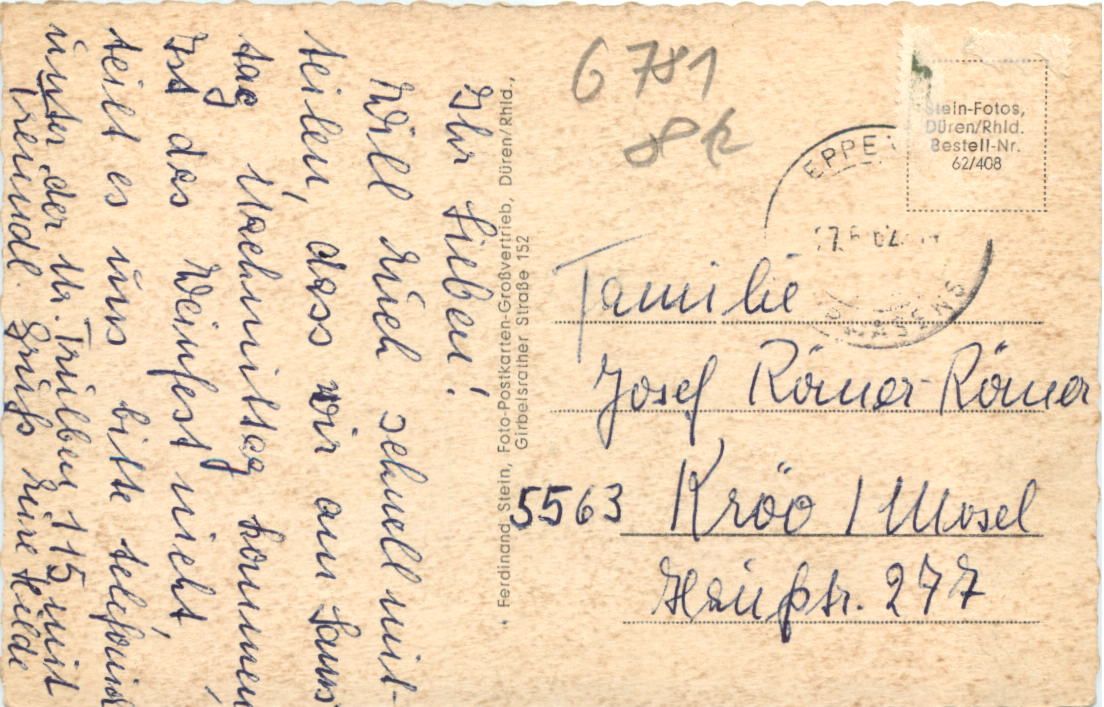 Ihr Lieben!
Will Euch schnell mit-
teilen, dass wir am Sams
tag Nachmittag kommen
Ist das Weinfest nicht,
teilt es uns bitte telefonid
unter der Nr. Trulben 115 mit
Freundl. Grüße Eure Hilde
Ferdinand Stein, Foto-Postkarten-Großvertrieb, Düren/Rhld.,
Girbelsrather Straße 152
6781
8k
Stein-Fotos,
Düren/Rhld.
Bestell-Nr.
62/408
EPPE
Familie
Josef Römer-Römer
5563 Kröv / Mosel
Hauptstr. 277